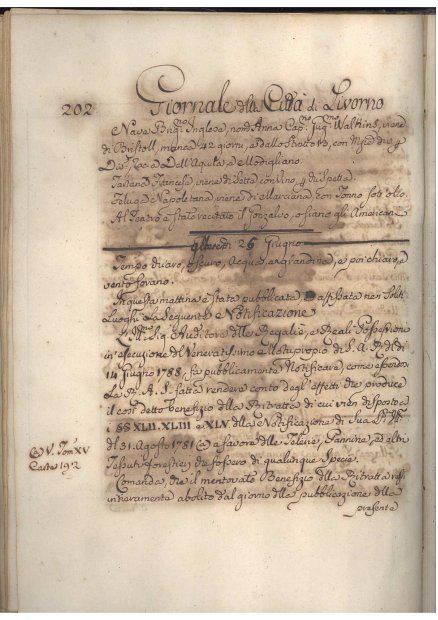 202
Giornale della Città di Livorno
Nave Inglese, nom.ta Anna Cap.no Watkins, viene
di Bristoll, manca 42 giorni, e dallo Stretto 10, con
Dell'Aquila e Modigliano.
Tartana Francese, viene di Cetta con Vino, p Spetia.
Feluga Napoletana, viene di Marciana, con Tonno sott'olio.
Al Teatro è stato recitato il Gonzalvo, ossiano gli Americani
26 Giugno
Tempo vario, oscuro, Acqua, e grandina, e poi chiaro, e
vento
In questa mattina è stata pubblicata, ed affissata nei Soliti
Luoghi la Seguente Notificazione
Sig. Auditore delle Regalie, e Reali Possessioni
in esecuzione del Veneratissimo Motuproprio di S. A. R. del dì
14 Giugno 1788, fa pubblicamente Notificare, come essendosi
la R. A. S. fatta rendere conto degl'effetti che produce
il così detto benefizio della Ritratta di cui vien disposto a
i §§ XLII. XLIII e XLV della Notificazione di Sua
del 31. Agosto 1781 (a) a favore delle Telerie, Pannine, ed altri
Tessuti forestieri che fossero di qualunque Specie.
(a) V. Tom. XV
Carta 192
Comanda, che il mentovato Benefizio della Ritratta resti
intieramente abolito dal giorno della pubblicazione della
presente